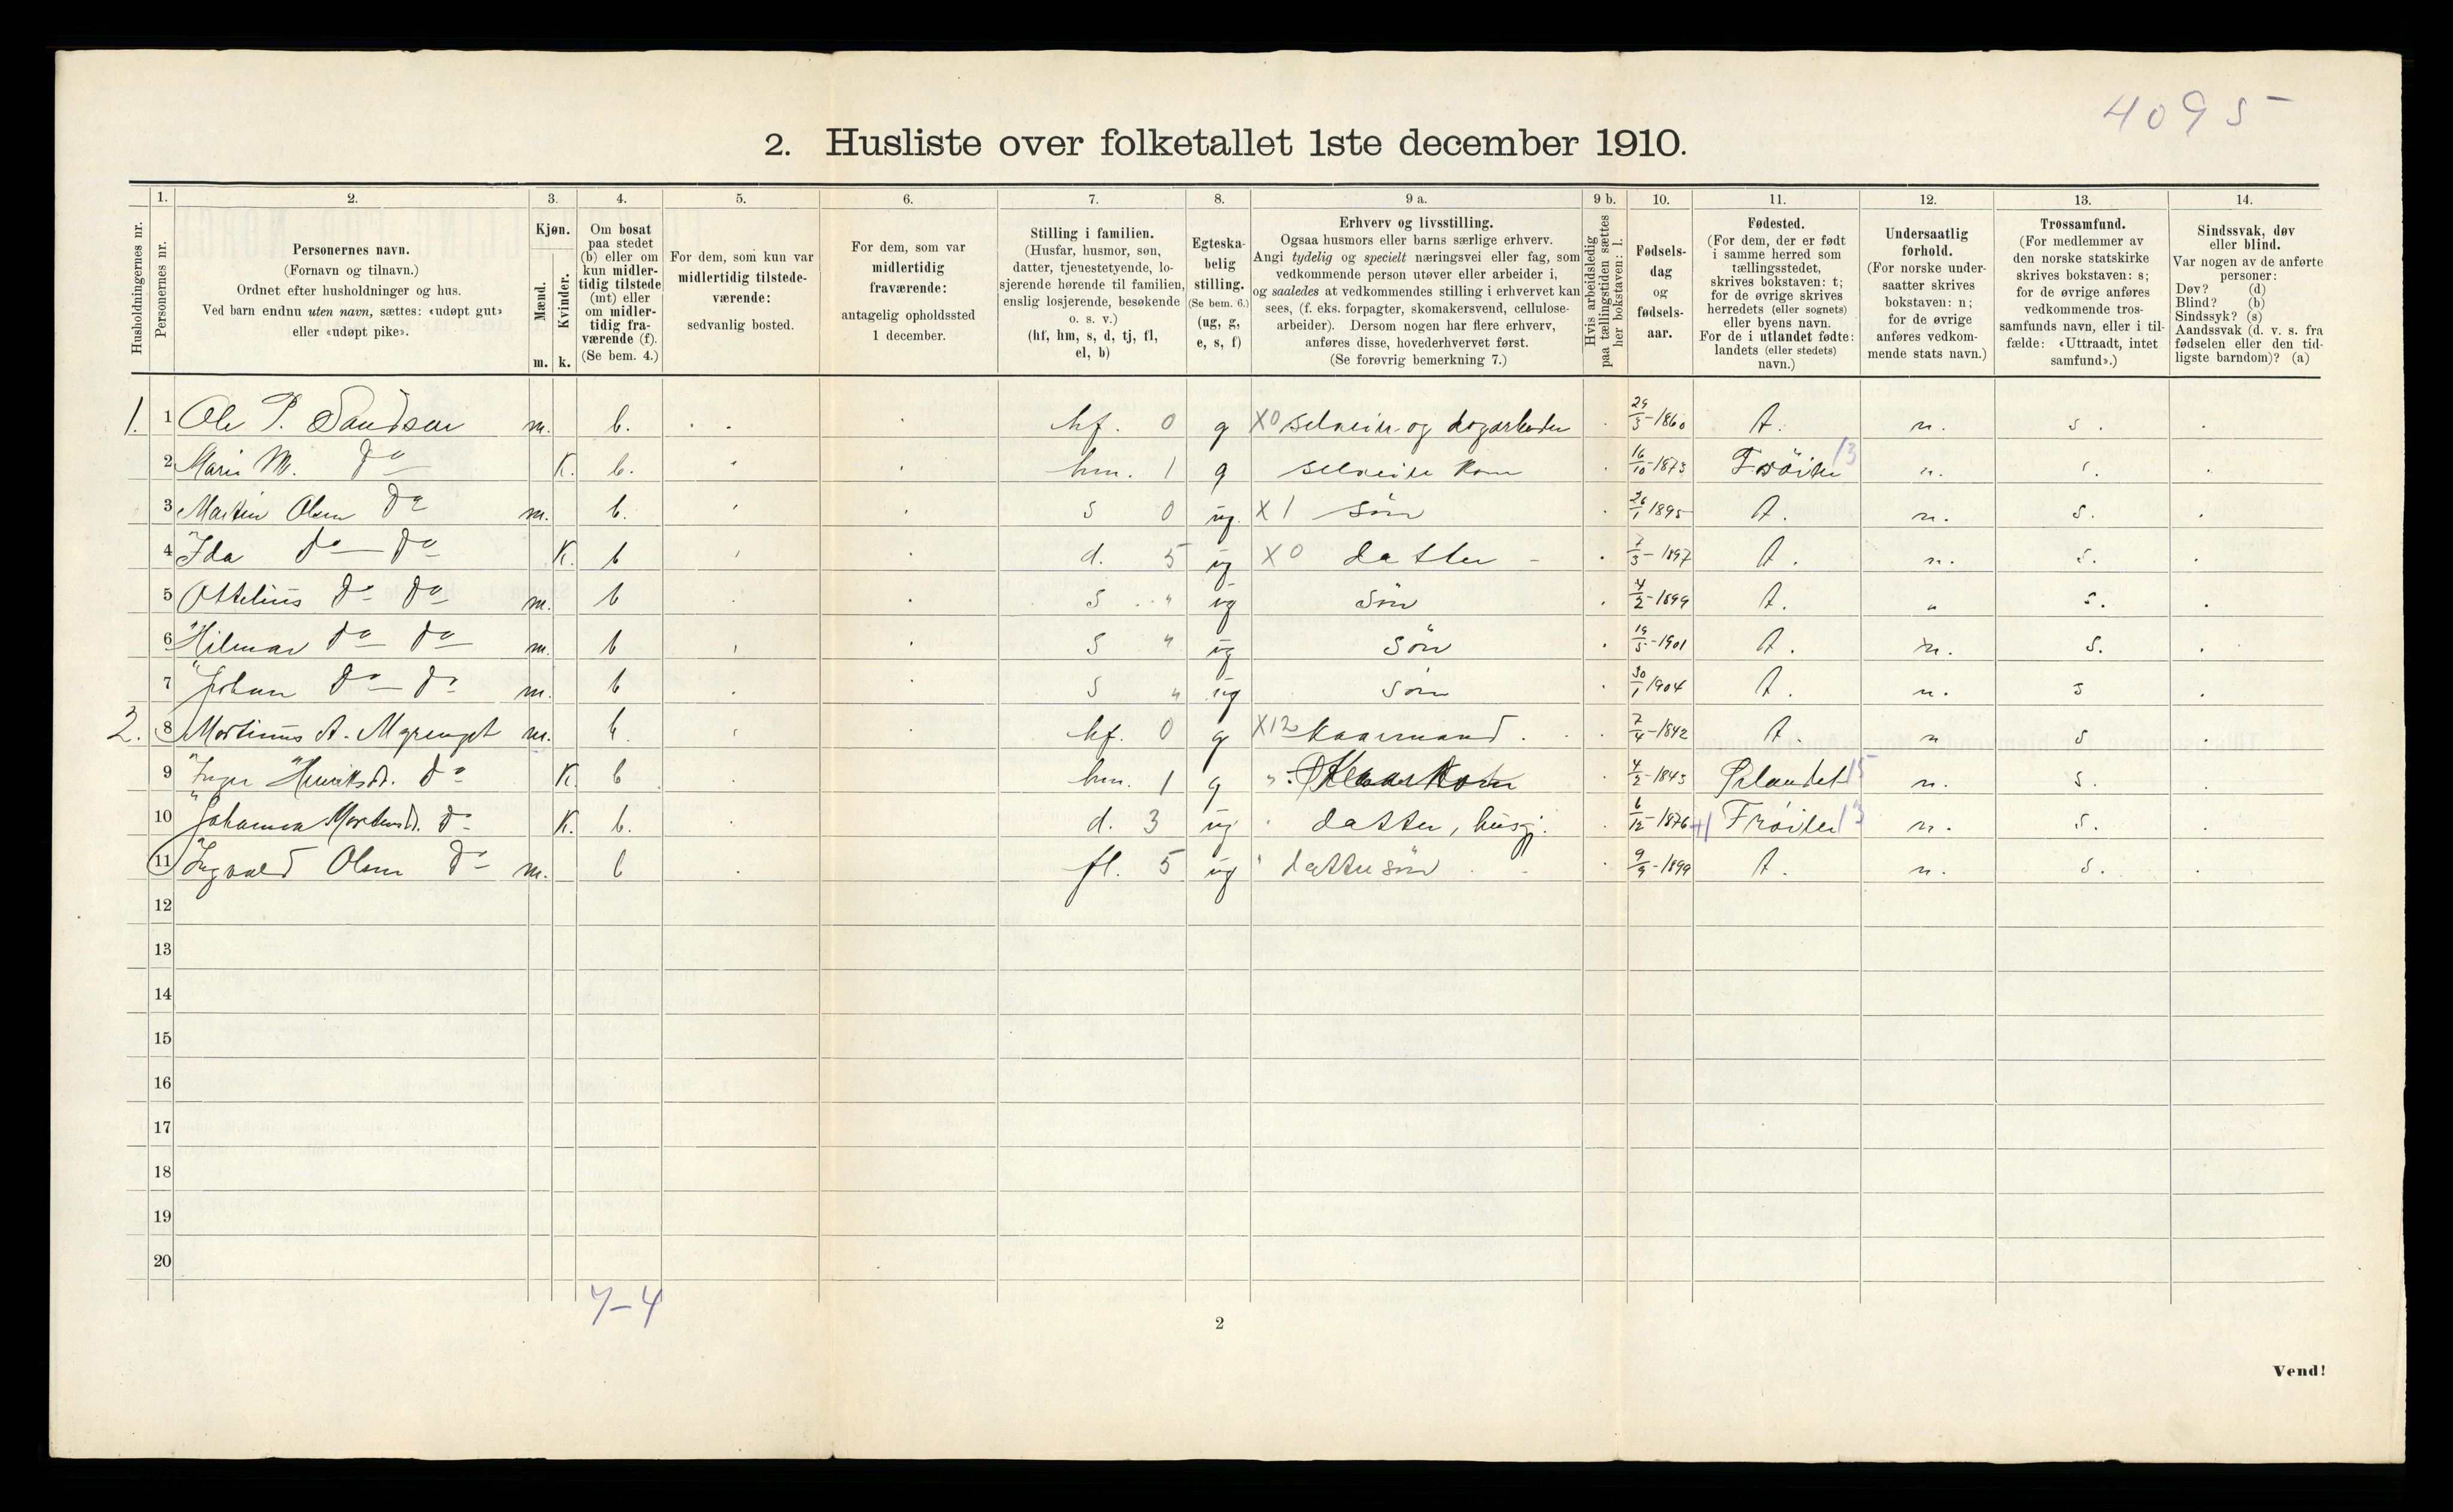 4095
2. Husliste over folketallet 1ste december 1910.
Husholdningernes nr.
1. Personernes nr.
2. Personernes navn.
(Fornavn og tilnavn.)
Ordnet efter husholdninger og hus.
Ved barn endnu uten navn, sættes: «udøpt gut»
eller «udøpt pike».
3. Kjøn.
Mænd. m.
Kvinder. k.
4. Om bosat
paa stedet
(b) eller om
kun midler-
tidig tilstede
(mt) eller
om midler-
tidig fra-
værende (f).
(Se bem. 4.)
5. For dem, som kun var
midlertidig tilstede-
værende:
sedvanlig bosted.
6. For dem, som var
midlertidig
fraværende:
antagelig opholdssted
1 december.
7. Stilling i familien.
(Husfar, husmor, søn,
datter, tjenestetyende, lo-
sjerende hørende til familien,
enslig losjerende, besøkende
o. s. v.)
(hf, hm, s, d, tj, fl,
el, b)
8. Egteska-
belig
stilling.
(Se bem. 6.)
(ug, g,
e, s, f)
9 a. Erhverv og livsstilling.
Ogsaa husmors eller barns særlige erhverv.
Angi tydelig og specielt næringsvei eller fag, som
vedkommende person utøver eller arbeider i,
og saaledes at vedkommendes stilling i erhvervet kan
sees, (f. eks. forpagter, skomakersvend, cellulose-
arbeider). Dersom nogen har flere erhverv,
anføres disse, hovederhvervet først.
(Se forøvrig bemerkning 7.)
9 b. Hvis arbeidsledig
paa tællingstiden sættes
her bokstaven: l.
10. Fødsels-
dag
og
fødsels-
aar.
11. Fødested.
(For dem, der er født
i samme herred som
tællingsstedet,
skrives bokstaven: t;
for de øvrige skrives
herredets (eller sognets)
eller byens navn.
For de i utlandet fødte:
landets (eller stedets)
navn.)
12. Undersaatlig
forhold.
(For norske under-
saatter skrives
bokstaven: n;
for de øvrige
anføres vedkom-
mende stats navn.)
13. Trossamfund.
(For medlemmer av
den norske statskirke
skrives bokstaven: s;
for de øvrige anføres
vedkommende tros-
samfunds navn, eller i til-
fælde: «Uttraadt, intet
samfund».)
14. Sindssvak, døv
eller blind.
Var nogen av de anførte
personer:
Døv? (d)
Blind? (b)
Sindssyk? (s)
Aandssvak (d. v. s. fra
fødselen eller den tid-
ligste barndom)? (a)
1. 1 Ole P. Sandsen m. b. hf. 0 g X0 selveier og dagarbeider 29/3-1860 t. n. s.
2 Marie M. do K. b. hm. 1 g selveier kone 16/10-1873 Frøiten 13 n.
3 Martin Olsen do m. b. s 0 ug. X 1 søn 26/1 1895 t. n. s.
4 Ida do do K. b d. 5 ug X0 datter 7/3-1897 t. n. s.
5 Ottelius do do m. b s " ug søn 4/2-1899 t. " s.
6 Hilmar do do m. b s " ug søn 19/5-1901 t. n. s.
7 Johan do do m. b s " ug søn 30/1 1904 t. n. s
2. 8 Mortinus A. Myrenget m. b. hf. 0 g X12 kaarmand. 7/4-1842 t. n s
9 Inger Henriksd. do K. b hm. 1 g " 4/2-1843 Ørlandet 15 n. s.
10 Johanna Mortensd. do K. b. d. 3 ug datter, husgj. 6/12-1876 Frøiten 13 n. s.
11 Ingvald Olsen do m. b fl. 5 ug dattersøn 9/9-1899 t. n. s.
12
13
14
15
16
17
18
19
20
7-4
2
Vend!